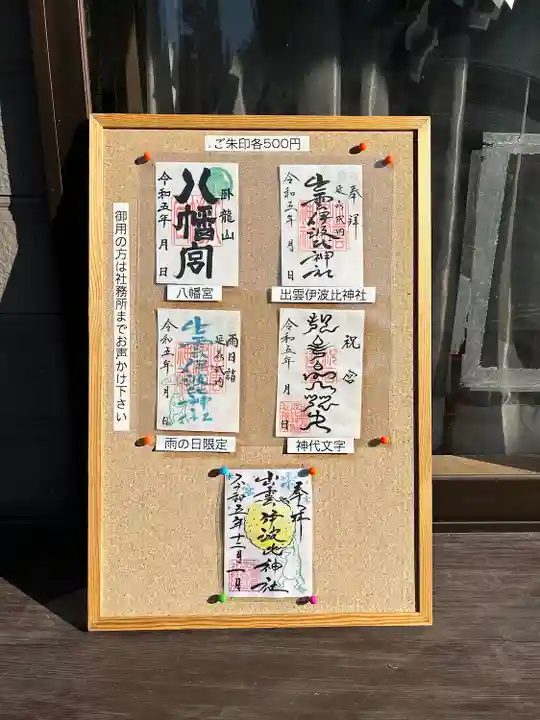 ご朱印各500円
御用の方は社務所までお声かけ下さい
臥龍山
八幡宮
令和五年 月 日
八幡宮
奉拝
延喜式内
出雲伊波比神社
令和五年 月 日
出雲伊波比神社
雨日詣
延喜式内
出雲伊波比神社
令和五年 月 日
雨の日限定
令和五年 月 日
神代文字
奉拝
出雲伊波比神社
令和五年十二月一日